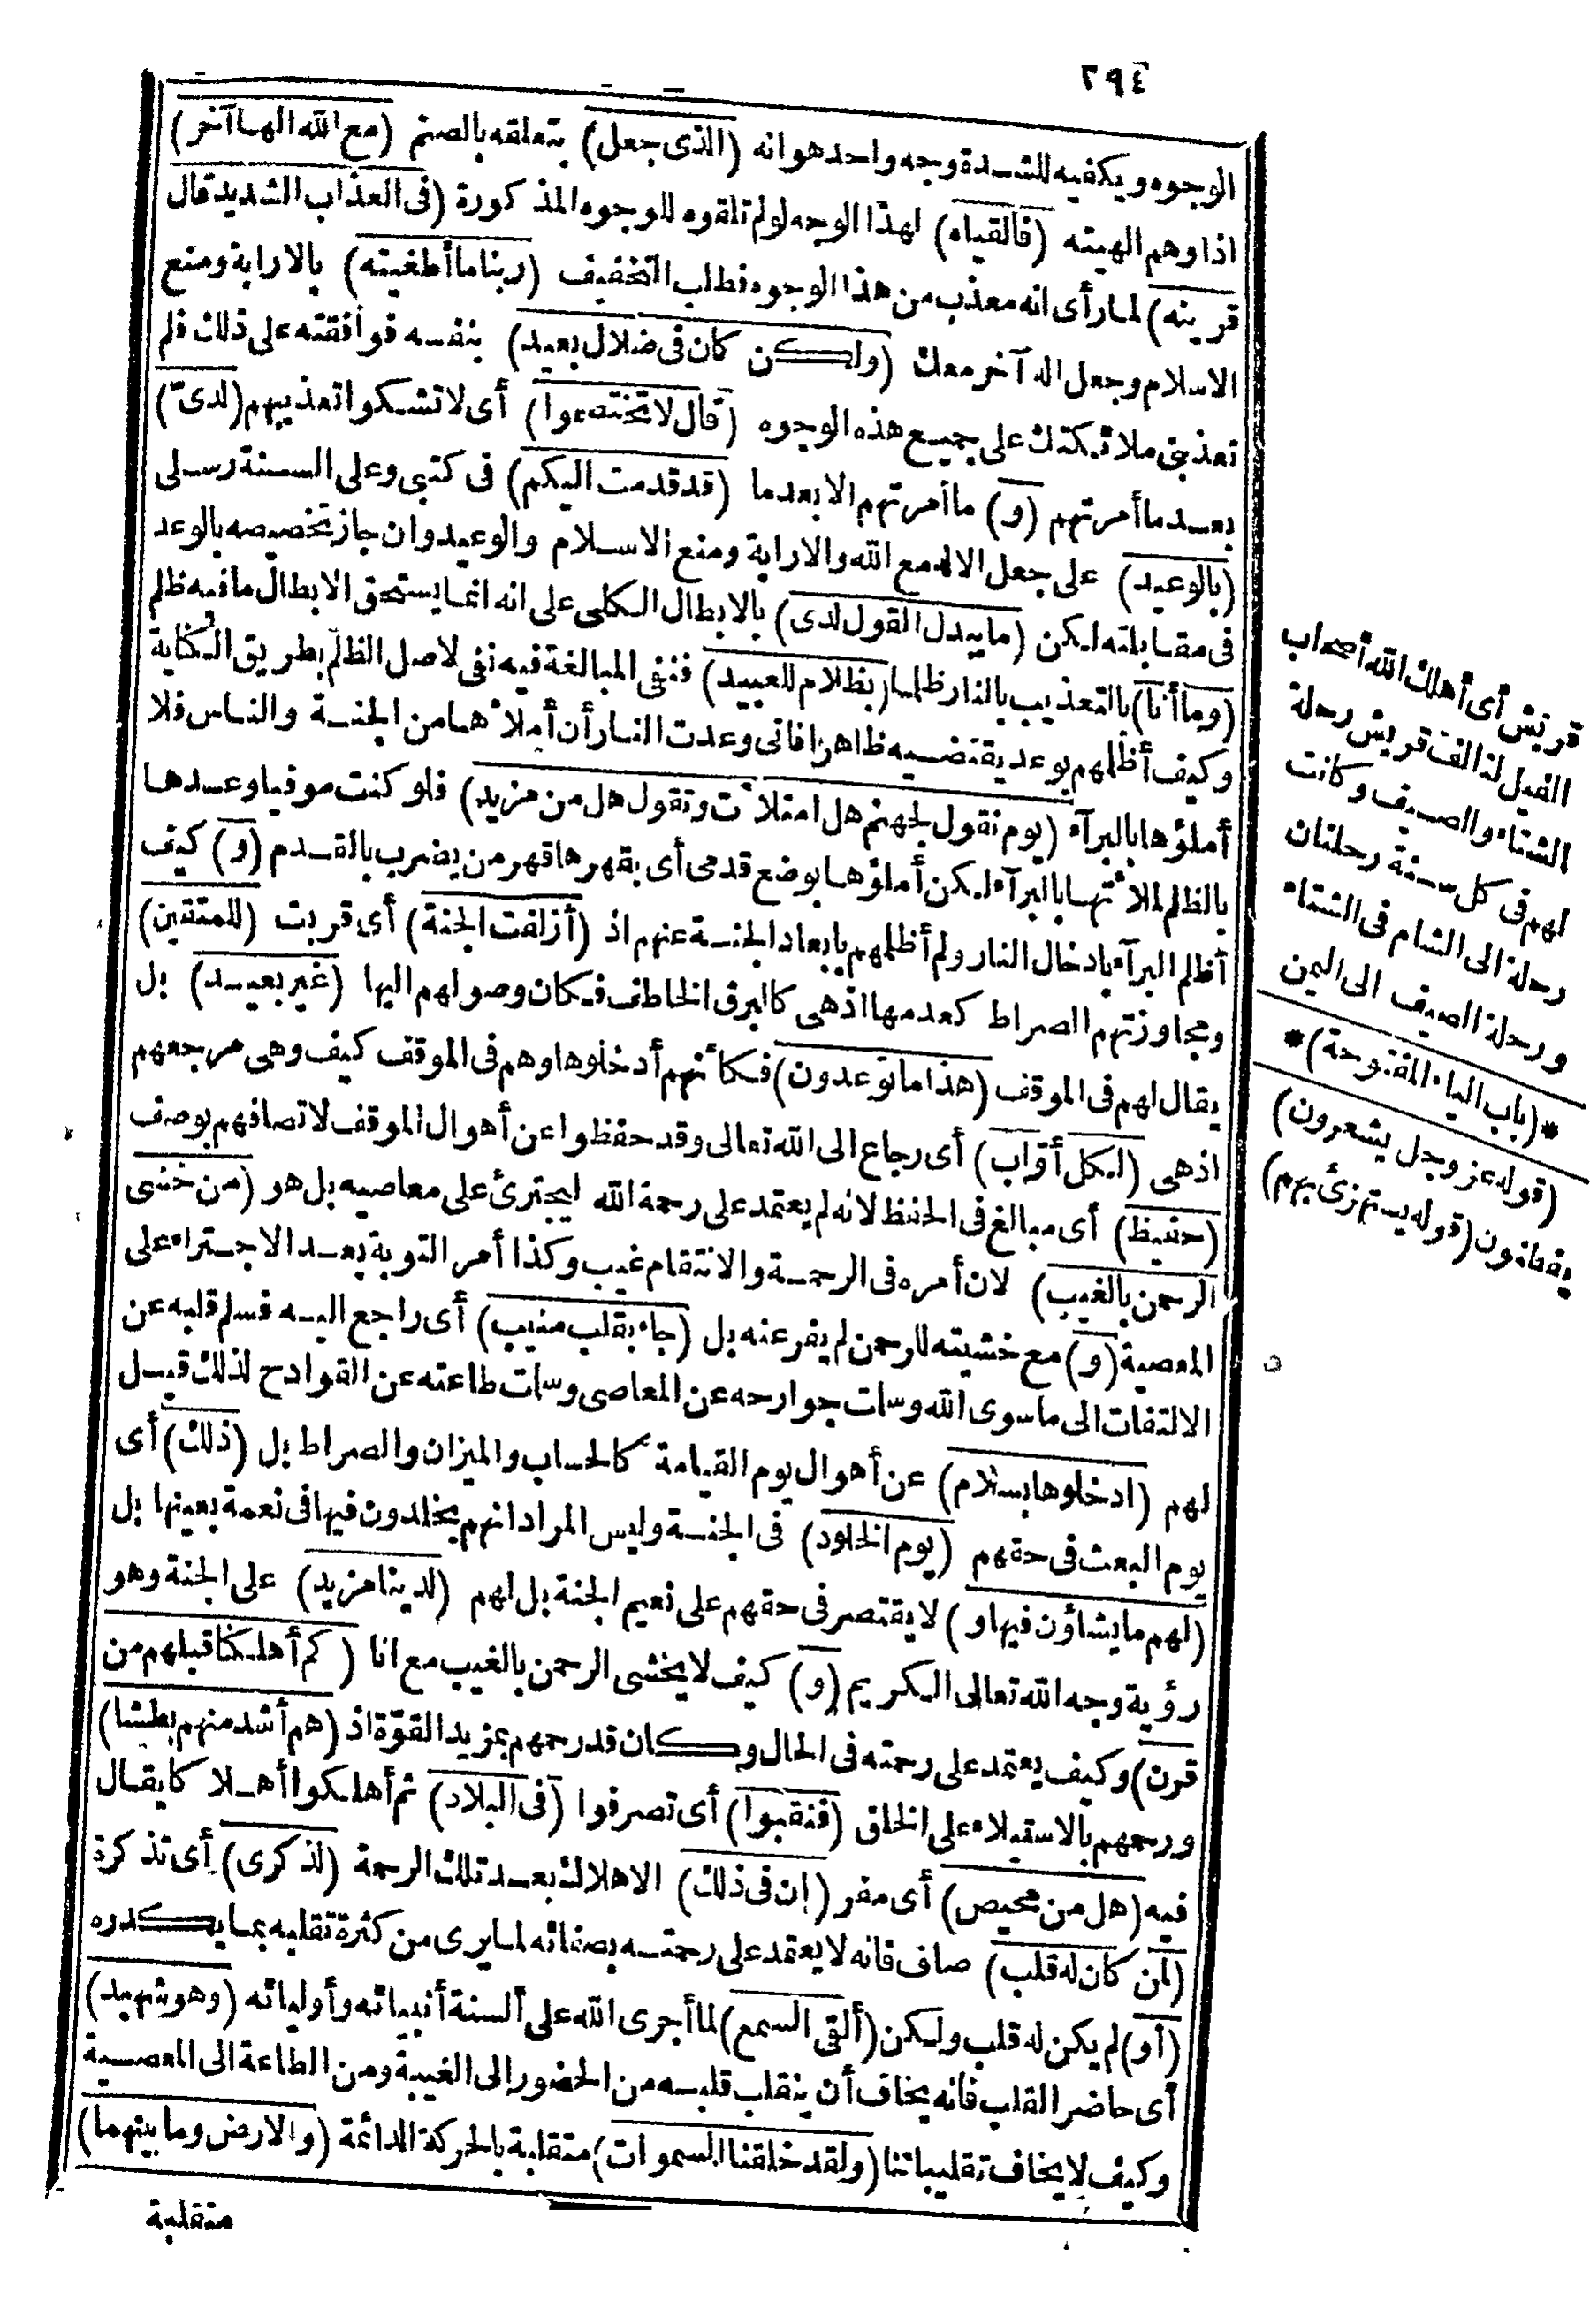 ٢٩٤
الوجوه ويكفيه للشدة وجه واحد هو انه (الذى جعل) بتعلقه بالصنم (مع الله الها آخر)
اذ اوهم الهيته (فالقياه) لهذا الوجه لو لم تلقوه للوجوه المذكورة (فى العذاب الشديد قال
قرينه) لما رأى انه معذب من هذا الوجوه فطلب التخفيف (ربنا ما أطغيته) بالارابة ومنع
الاسلام وجعل اله آخر معك (ولكن كان فى ضلال بعيد) بنفسه فوافقته على ذلك فلم
تعذبنى ملائكتك على جميع هذه الوجوه (قال لا تختصموا) أى لا تشكوا تعذيبهم (لدىّ)
بعد ما أمرتهم (و) ما أمرتهم الا بعد ما (قد قدمت اليكم) فى كتبى وعلى السنة رسلى
(بالوعيد) على جعل الاله مع الله والارابة ومنع الاسلام والوعيد وان جاز تخصيصه بالوعد
فى مقابلته لكن (ما يبدل القول لدى) بالابطال الكلى على انه انما يستحق الابطال ما فيه ظلم
(وما أنا) بالتعذيب بالنار ظلما (بظلام للعبيد) فنفى المبالغة فيه نفى لاصل الظلم بطريق الكناية
وكيف أظلمهم بوعد يقتضيه ظاهرا فانى وعدت النار أن أملأها من الجنة والناس فلا
أملؤها بالبرآء (يوم نقول لجهنم هل امتلأت وتقول هل من مزيد) فلو كنت موفيا وعدها
بالظلم لملأتها بالبرآء لكن أملؤها بوضع قدمى أى بقهرها قهر من يضرب بالقدم (و) كيف
أظلم البرآء بادخال النار ولم أظلمهم بابعاد الجنة عنهم اذ (أزلفت الجنة) أى قربت (للمتقين)
ومجاوزتهم الصراط كعدمها اذ هى كالبرق الخاطف فكان وصولهم اليها (غير بعيد) بل
يقال لهم فى الموقف (هذا ما توعدون) فكأنهم أدخلوها وهم فى الموقف كيف وهى مرجعهم
اذ هى (لكل أوّاب) أى رجاع الى الله تعالى وقد حفظوا عن أهوال الموقف لاتصافهم بوصف
(حفيظ) أى مبالغ فى الحفظ لانه لم يعتمد على رحمة الله ليجترئ على معاصيه بل هو (من خشى
الرحمن بالغيب) لان أمره فى الرحمة والانتقام غيب وكذا أمر التوبة بعد الاجتراء على
المعصية (و) مع خشيته للرحمن لم يفر عنه بل (جاء بقلب منيب) أى راجع اليه فسلم قلبه عن
الالتفات الى ما سوى الله وسلمت جوارحه عن المعاصى وسلمت طاعته عن القوادح لذلك قيل
لهم (ادخلوها بسلام) عن أهوال يوم القيامة كالحساب والميزان والصراط بل (ذلك) أى
يوم البعث فى حقهم (يوم الخلود) فى الجنة وليس المراد انهم يخلدون فيها فى نعمة بعينها بل
(لهم ما يشاؤن فيها و) لا يقتصر فى حقهم على نعيم الجنة بل لهم (لدينا مزيد) على الجنة وهو
رؤية وجه الله تعالى الكريم (و) كيف لا يخشى الرحمن بالغيب مع انا (كم أهلكنا قبلهم من
قرن) وكيف يعتمد على رحمته فى الحال وكان قد رحمهم بمزيد القوّة اذ (هم أشد منهم بطشا)
ورحمهم بالاستيلاء على الخلق (فنقبوا) أى تصرفوا (فى البلاد) ثم أهلكوا أهلا كا يقال
فيه (هل من محيص) أى مفر (ان فى ذلك) الاهلاك بعد تلك الرحمة (لذكرى) أى تذكرة
(لمن كان له قلب) صاف فانه لا يعتمد على رحمته بصفائه لما يرى من كثرة تقلبه بما يكدره
(أو) لم يكن له قلب ولكن (ألقى السمع) لما أجرى الله على ألسنة أنبيائه وأوليائه (وهو شهيد)
أى حاضر القلب فانه يخاف أن ينقلب قلبه من الحضور الى الغيبة ومن الطاعة الى المعصية
وكيف لا يخاف تقليباتنا (ولقد خلقنا السموات) متقلبة بالحركة الدائمة (والارض وما بينهما)
متقلبة
قريش أى أهلك الله أصحاب
الفيل لتالف قريش رحلة
الشتاء والصيف وكانت
لهم فى كل سنة رحلتان
رحلة الى الشام فى الشتاء
ورحلة الصيف الى اليمن
*(باب الياء المفتوحة)*
(قوله عز وجل يشعرون)
يفطنون (قوله يستهزئ بهم)